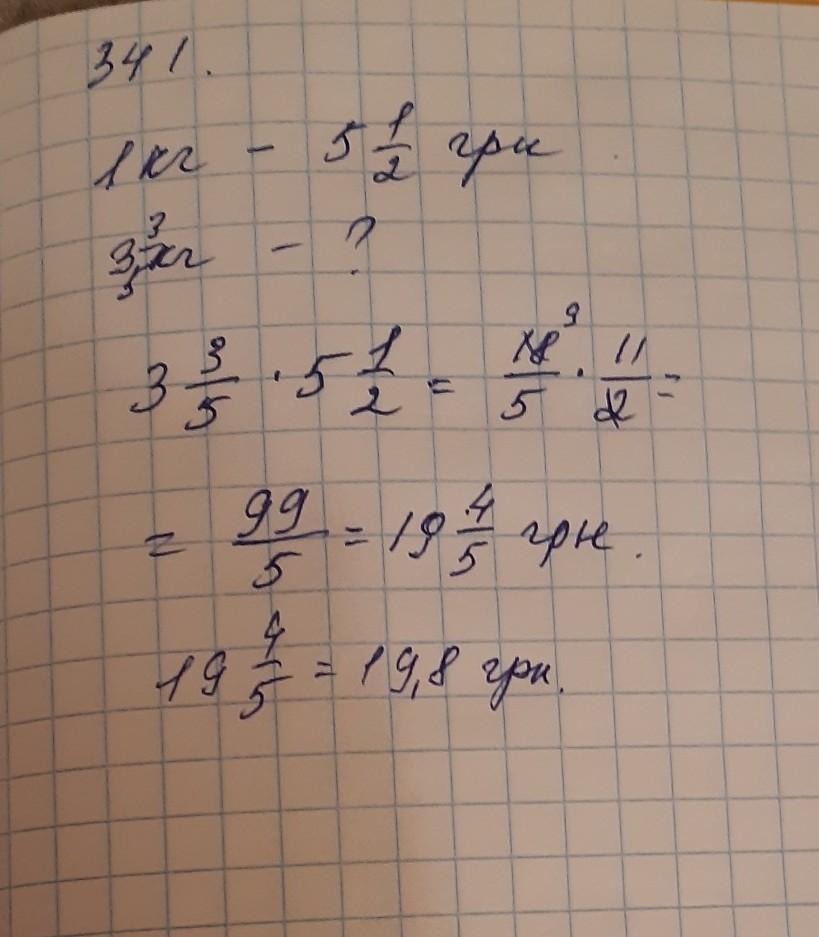 341.
1 кг - 5 1/2 грн
3 3/5 кг - ?
3 3/5 · 5 1/2 = 18/5 9 · 11/2 =
= 99/5 = 19 4/5 грн.
19 4/5 = 19,8 грн.